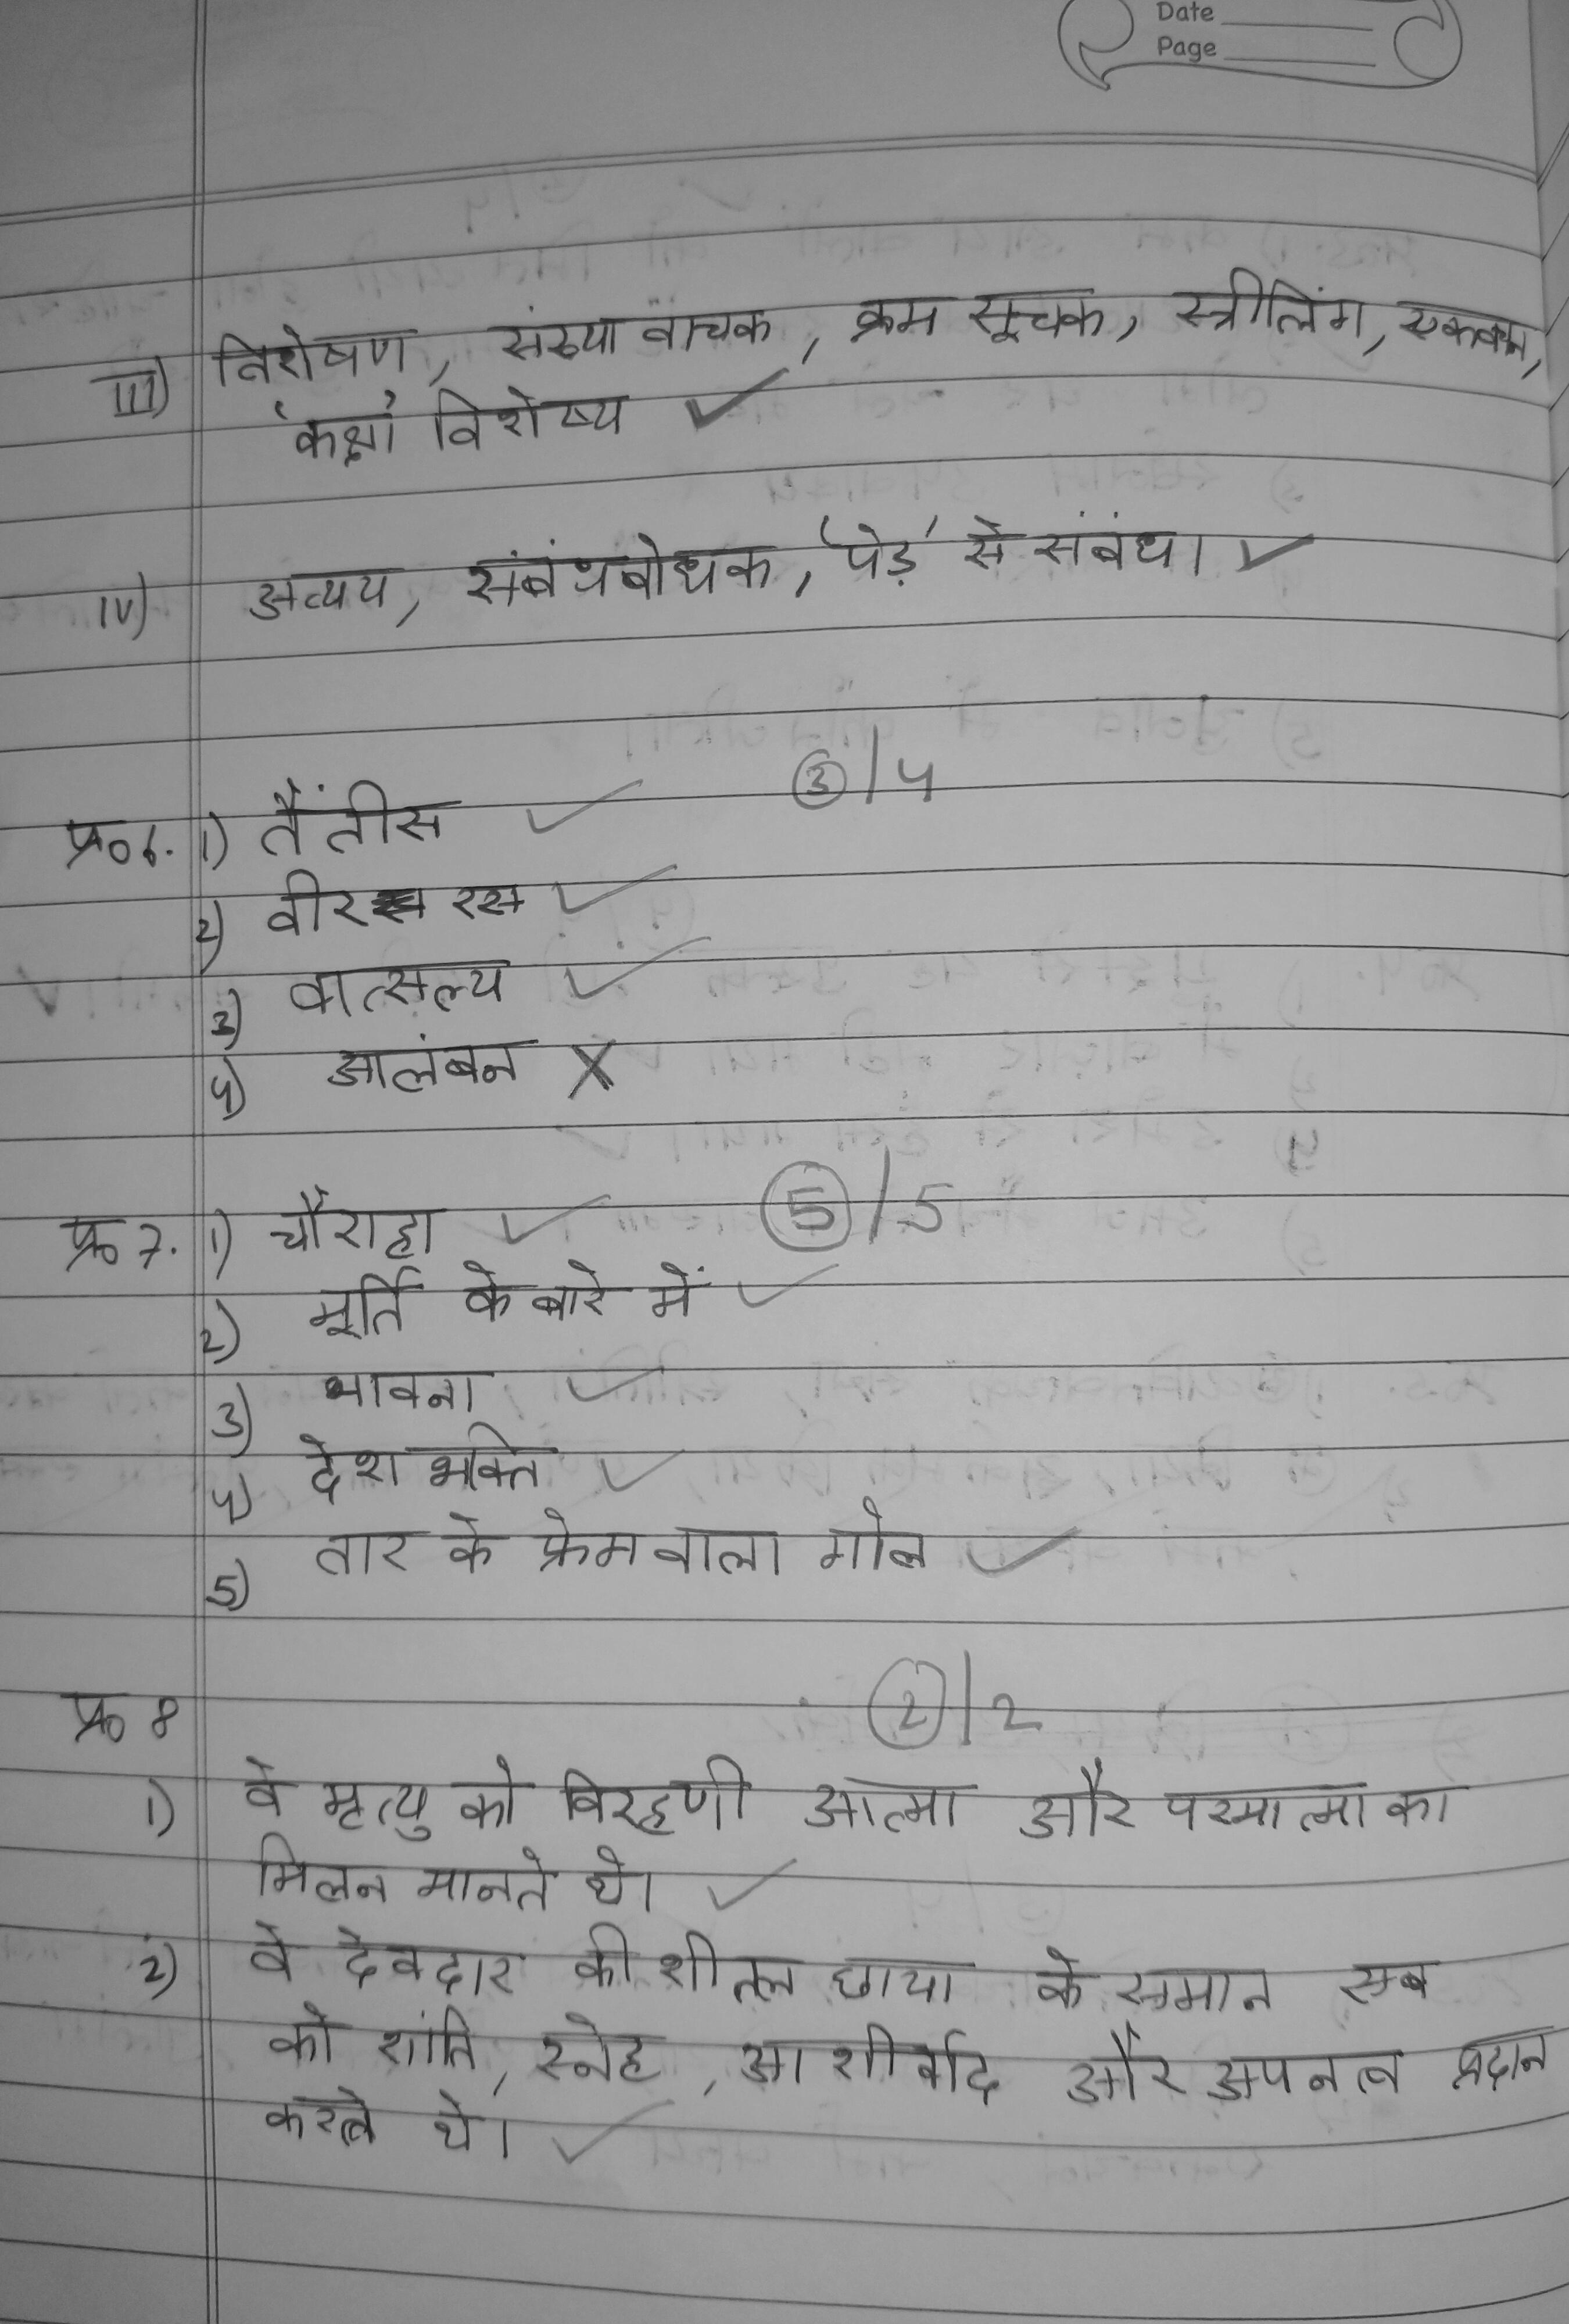 Date
Page
III) विशेषण, संख्यावाचक, क्रम सूचक, स्त्रीलिंग, एकवचन,
'कक्षा' विशेष्य ✓
IV) अव्यय, संबंधबोधक, 'पेड़' से संबंध। ✓
3/4
प्र०6. 1) तैंतीस ✓
2) वीर रस ✓
3) वात्सल्य ✓
4) आलंबन X
5/5
प्र० 7. 1) चौराहा ✓
2) मूर्ति के बारे में ✓
3) भावना ✓
4) देश भक्ति ✓
5) तार के फ्रेम वाला गोल ✓
प्र० 8 2/2
1) वे मृत्यु को विरहणी आत्मा और परमात्मा का
मिलन मानते थे। ✓
2) वे देवदार की शीतल छाया के समान सब
को शांति, स्नेह, आशीर्वाद और अपनत्व प्रदान
करते थे। ✓